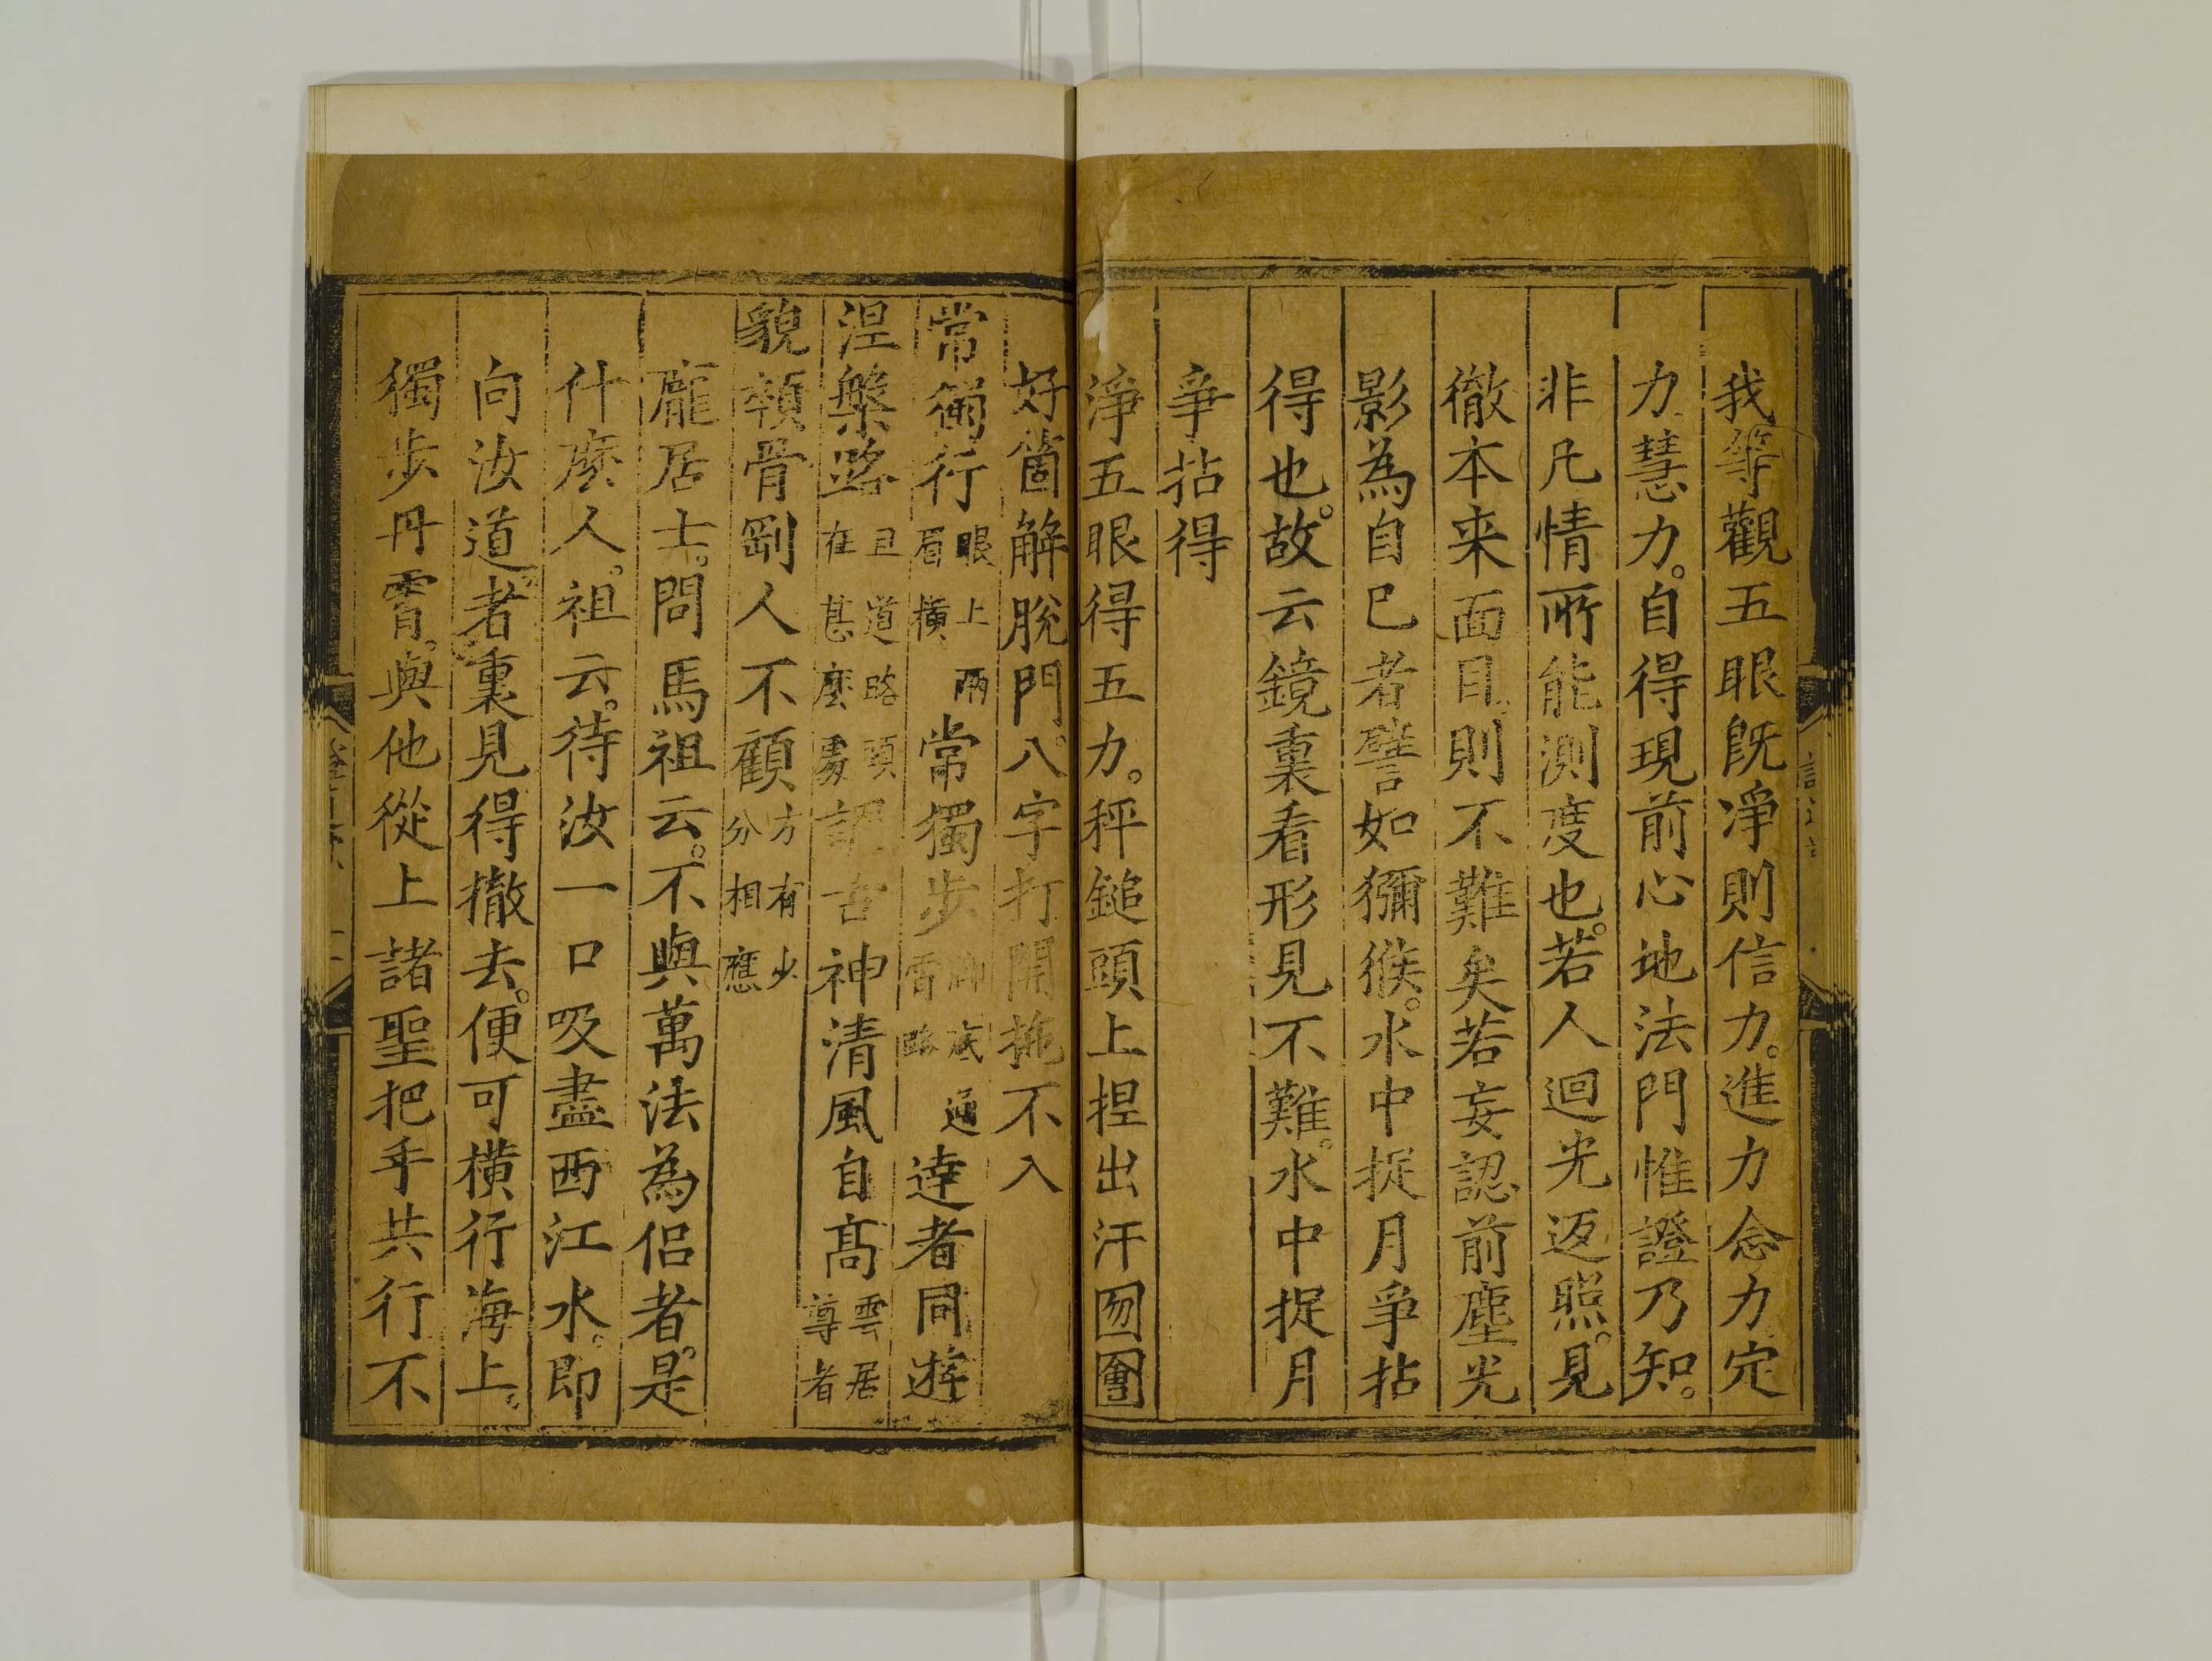 我等觀五眼既淨則信力。進力念力定
力慧力。自得現前心地法門惟證乃知。
非凡情所能測度也。若人迴光返照。見
徹本来面目。則不難矣若妄認前塵光
影為自己者譬如獼猴。水中捉月爭拈
得也。故云鏡裏看形見不難。水中捉月
爭拈得
淨五眼得五力。秤鎚頭上捏出汗囫圇
好箇解脫門。八字打開拖不入
常獨行眼上兩眉橫常獨步脚底通霄路達者同遊
涅槃路且道路頭在甚麼處調古神清風自高雲居尊者
貌顇骨剛人不顧方有少分相應
龐居士。問馬祖云。不與萬法為侣者。是
什麼人。祖云。待汝一口吸盡西江水。即
向汝道。者裏見得徹去。便可橫行海上。
獨步丹霄。與他從上諸聖把手共行不